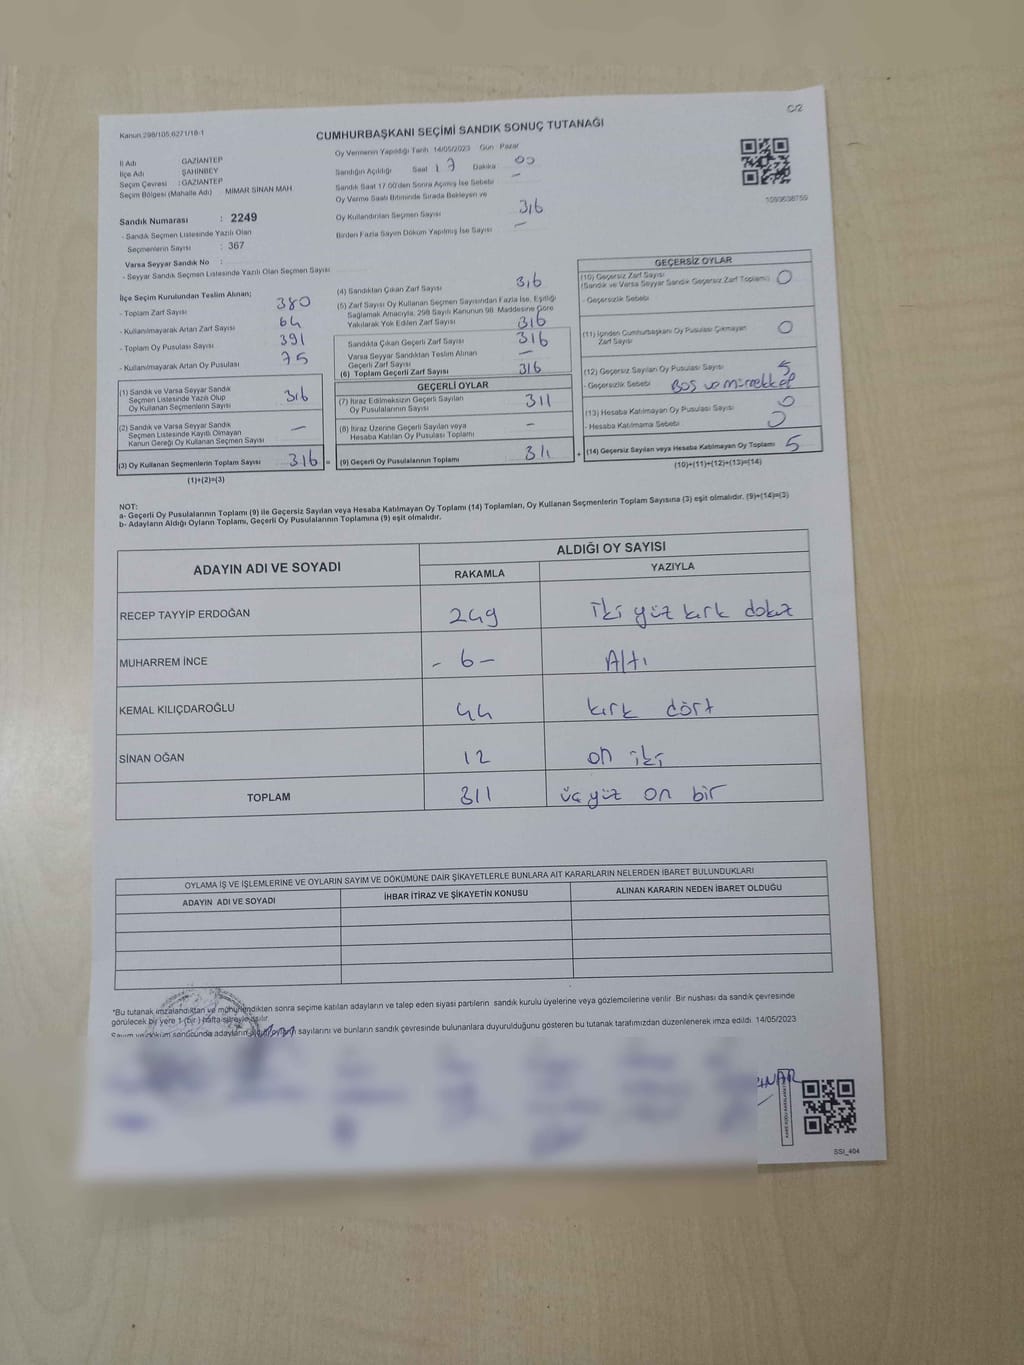 C/2
Kanun:298/105,6271/18-1
CUMHURBAŞKANI SEÇİMİ SANDIK SONUÇ TUTANAĞI
İl Adı GAZİANTEP
İlçe Adı ŞAHİNBEY
Seçim Çevresi : GAZİANTEP
Seçim Bölgesi (Mahalle Adı) MİMAR SİNAN MAH
Sandık Numarası : 2249
- Sandık Seçmen Listesinde Yazılı Olan
Seçmenlerin Sayısı : 367
Varsa Seyyar Sandık No :
- Seyyar Sandık Seçmen Listesinde Yazılı Olan Seçmen Sayısı
Oy Vermenin Yapıldığı Tarih 14/05/2023 Gün Pazar
Sandığın Açıldığı Saat 17 Dakika 00
Sandık Saat 17:00'den Sonra Açılmış İse Sebebi —
Oy Verme Saati Bitiminde Sırada Bekleyen ve
Oy Kullandırılan Seçmen Sayısı 316
Birden Fazla Sayım Döküm Yapılmış İse Sayısı —
1593638759
İlçe Seçim Kurulundan Teslim Alınan;
- Toplam Zarf Sayısı 380
- Kullanılmayarak Artan Zarf Sayısı 64
- Toplam Oy Pusulası Sayısı 391
- Kullanılmayarak Artan Oy Pusulası 75
(1) Sandık ve Varsa Seyyar Sandık
Seçmen Listesinde Yazılı Olup
Oy Kullanan Seçmenlerin Sayısı 316
(2) Sandık ve Varsa Seyyar Sandık
Seçmen Listesinde Kayıtlı Olmayan
Kanun Gereği Oy Kullanan Seçmen Sayısı —
(3) Oy Kullanan Seçmenlerin Toplam Sayısı 316 =
(1)+(2)=(3)
(4) Sandıktan Çıkan Zarf Sayısı 316
(5) Zarf Sayısı Oy Kullanan Seçmen Sayısından Fazla İse, Eşitliği
Sağlamak Amacıyla, 298 Sayılı Kanunun 98. Maddesine Göre
Yakılarak Yok Edilen Zarf Sayısı 316
Sandıkta Çıkan Geçerli Zarf Sayısı 316
Varsa Seyyar Sandıktan Teslim Alınan
Geçerli Zarf Sayısı —
(6) Toplam Geçerli Zarf Sayısı 316
GEÇERLİ OYLAR
(7) İtiraz Edilmeksizin Geçerli Sayılan
Oy Pusulalarının Sayısı 311
(8) İtiraz Üzerine Geçerli Sayılan veya
Hesaba Katılan Oy Pusulası Toplamı -
(9) Geçerli Oy Pusulalarının Toplamı 311 +
GEÇERSİZ OYLAR
(10) Geçersiz Zarf Sayısı
(Sandık ve Varsa Seyyar Sandık Geçersiz Zarf Toplamı) 0
- Geçersizlik Sebebi
(11) İçinden Cumhurbaşkanı Oy Pusulası Çıkmayan
Zarf Sayısı 0
(12) Geçersiz Sayılan Oy Pusulası Sayısı 5
- Geçersizlik Sebebi Boş ve mürekkep
(13) Hesaba Katılmayan Oy Pusulası Sayısı 0
- Hesaba Katılmama Sebebi 0
(14) Geçersiz Sayılan veya Hesaba Katılmayan Oy Toplamı 5
(10)+(11)+(12)+(13)=(14)
NOT:
a- Geçerli Oy Pusulalarının Toplamı (9) ile Geçersiz Sayılan veya Hesaba Katılmayan Oy Toplamı (14) Toplamları, Oy Kullanan Seçmenlerin Toplam Sayısına (3) eşit olmalıdır. (9)+(14)=(3)
b- Adayların Aldığı Oyların Toplamı, Geçerli Oy Pusulalarının Toplamına (9) eşit olmalıdır.
ADAYIN ADI VE SOYADI
ALDIĞI OY SAYISI
RAKAMLA YAZIYLA
RECEP TAYYİP ERDOĞAN 249 iki yüz kırk dokuz
MUHARREM İNCE - 6 - Altı
KEMAL KILIÇDAROĞLU 44 kırk dört
SİNAN OĞAN 12 on iki
TOPLAM 311 üç yüz on bir
OYLAMA İŞ VE İŞLEMLERİNE VE OYLARIN SAYIM VE DÖKÜMÜNE DAİR ŞİKAYETLERLE BUNLARA AİT KARARLARIN NELERDEN İBARET BULUNDUKLARI
ADAYIN ADI VE SOYADI İHBAR İTİRAZ VE ŞİKAYETİN KONUSU ALINAN KARARIN NEDEN İBARET OLDUĞU
*Bu tutanak imzalandıktan ve mühürlendikten sonra seçime katılan adayların ve talep eden siyasi partilerin sandık kurulu üyelerine veya gözlemcilerine verilir. Bir nüshası da sandık çevresinde
görülecek bir yere 1 (bir) hafta süreyle asılır.
Sayım ve döküm sonucunda adayların aldığı oy sayılarını ve bunların sandık çevresinde bulunanlara duyurulduğunu gösteren bu tutanak tarafımızdan düzenlenerek imza edildi. 14/05/2023
SSI_404